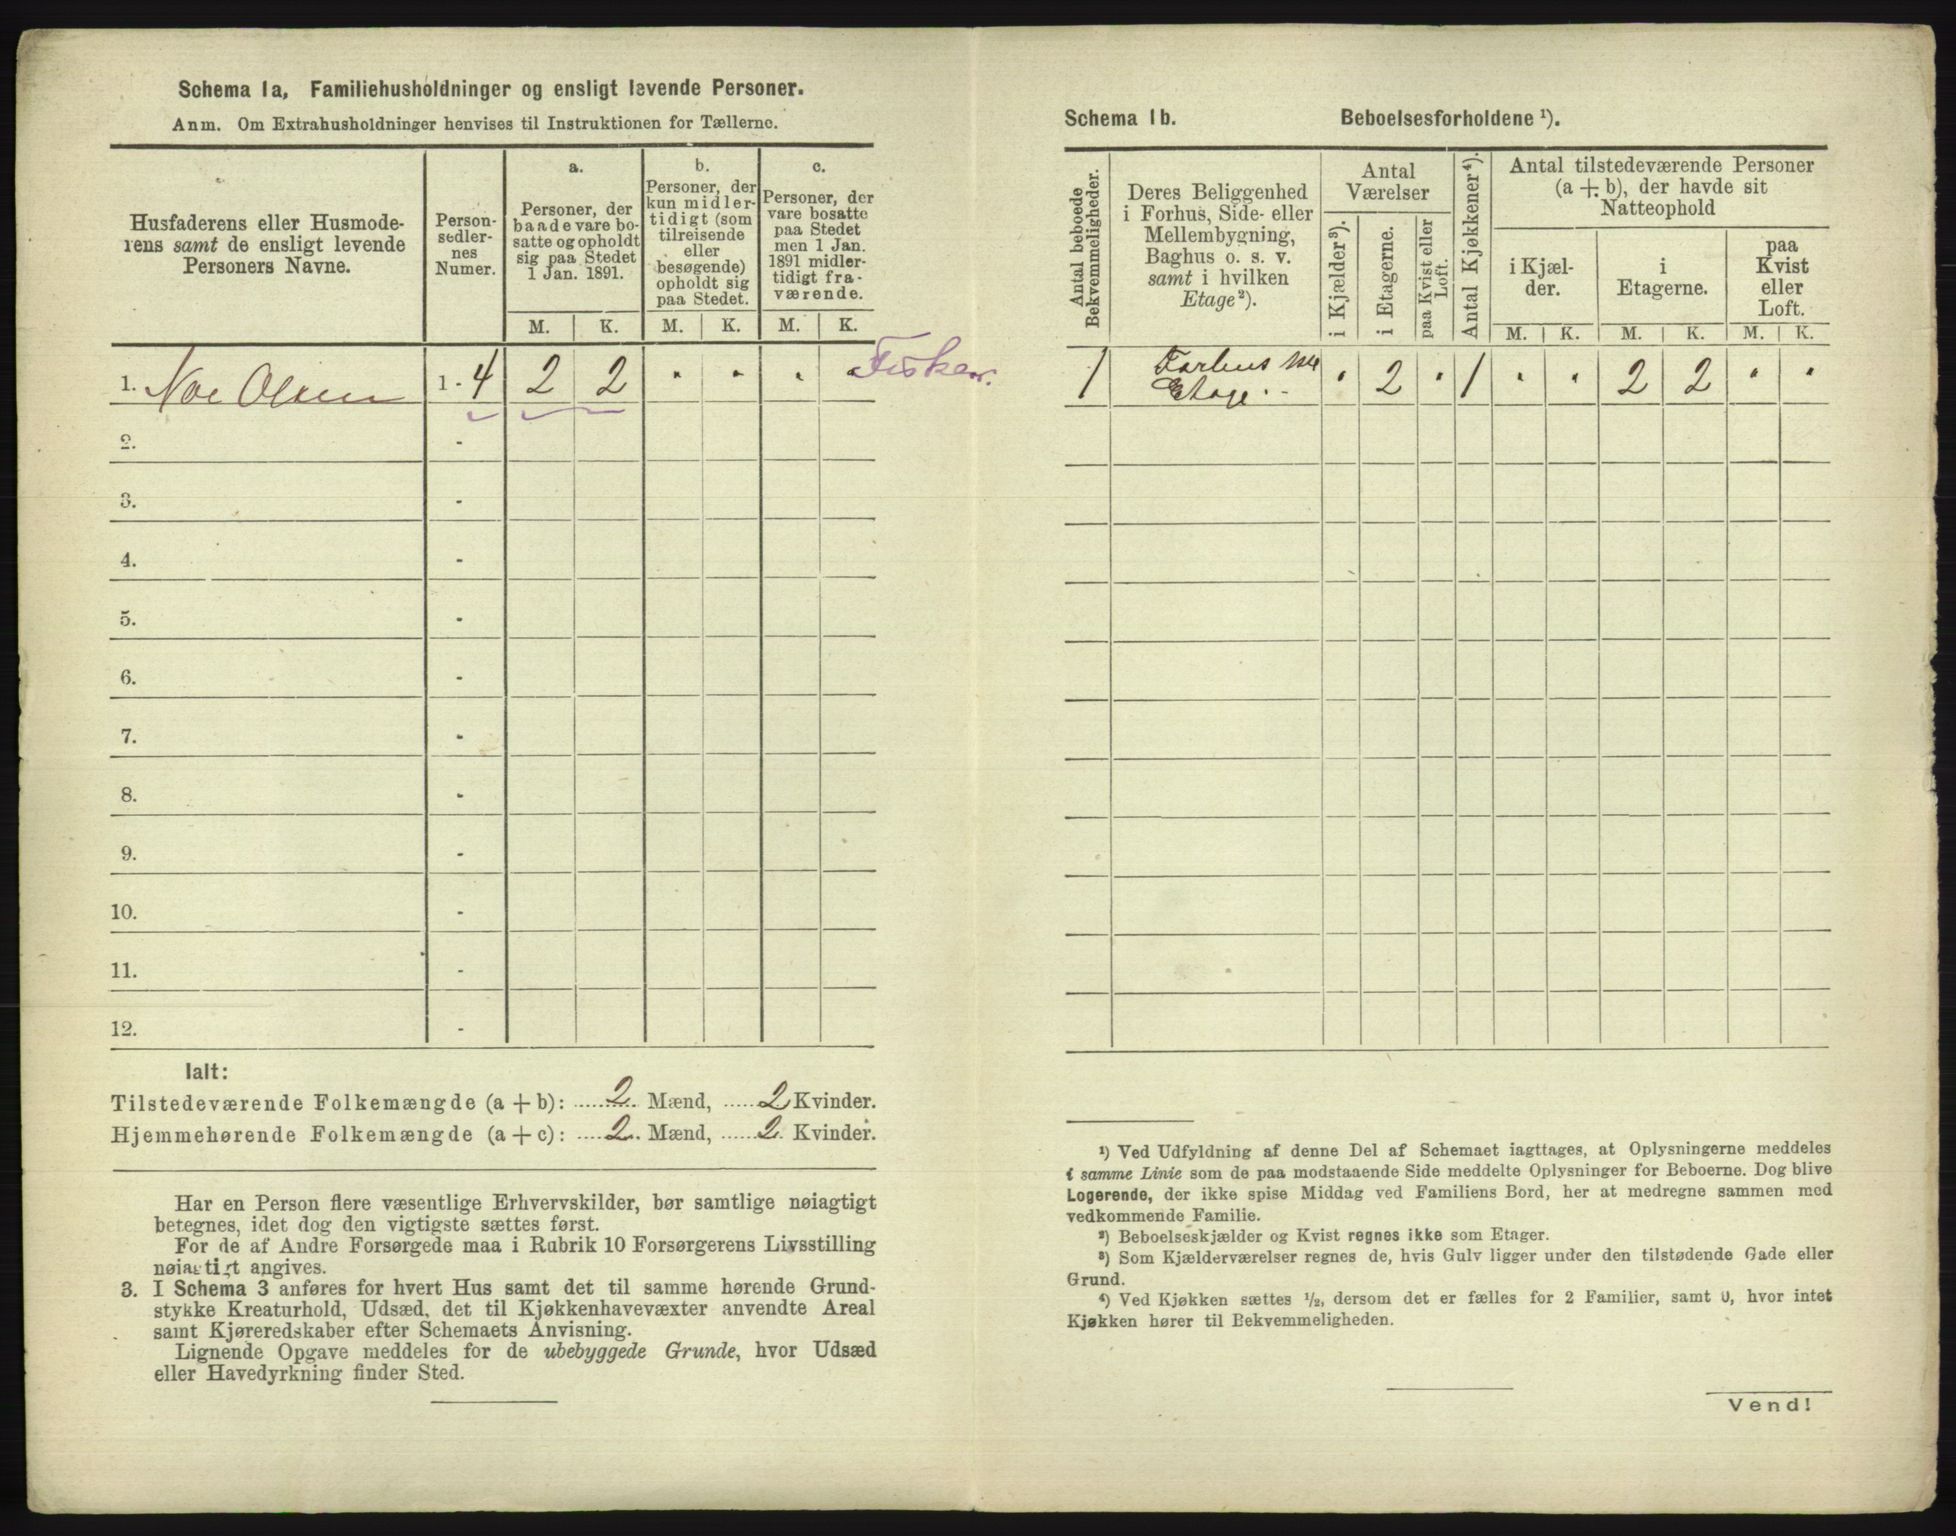 Schema 1a, Familiehusholdninger og ensligt levende Personer.
Anm. Om Extrahusholdninger henvises til Instruktionen for Tællerne.
Husfaderens eller Husmode-
rens samt de ensligt levende
Personers Navne.
Person-
sedler-
nes
Numer.
a.
Personer, der
baade vare bo-
satte og opholdt
sig paa Stedet
1 Jan. 1891.
b.
Personer, der
kun midler-
tidigt (som
tilreisende
eller
besøgende)
opholdt sig
paa Stedet.
c.
Personer, der
vare bosatte
paa Stedet
men 1 Jan.
1891 midler-
tidigt fra-
værende.
M. K. M. K. M. K.
1. Noe Olsen 1 - 4 2 2 " " " " Fisker.
2. -
3. -
4. -
5. -
6. -
7. -
8. -
9. -
10. -
11. -
12. -
Ialt:
Tilstedeværende Folkemængde (a + b): 2 Mænd, 2 Kvinder.
Hjemmehørende Folkemængde (a + c): 2 Mænd, 2 Kvinder.
Har en Person flere væsentlige Erhvervskilder, bør samtlige nøiagtigt
betegnes, idet dog den vigtigste sættes først.
For de af Andre Forsørgede maa i Rubrik 10 Forsørgerens Livsstilling
nøiagtigt angives.
3. I Schema 3 anføres for hvert Hus samt det til samme hørende Grund-
stykke Kreaturhold, Udsæd, det til Kjøkkenhavevæxter anvendte Areal
samt Kjøreredskaber efter Schemaets Anvisning.
Lignende Opgave meddeles for de ubebyggede Grunde, hvor Udsæd
eller Havedyrkning finder Sted.
Schema 1b. Beboelsesforholdene ¹).
Antal beboede
Bekvemmeligheder.
Deres Beliggenhed
i Forhus, Side- eller
Mellembygning,
Baghus o. s. v.
samt i hvilken
Etage²).
Antal
Værelser
i Kjælder³).
i Etagerne.
paa Kvist eller
Loft.
Antal Kjøkkener⁴).
Antal tilstedeværende Personer
(a + b), der havde sit
Natteophold
i Kjæl-
der.
i
Etagerne.
paa
Kvist
eller
Loft.
M. K. M. K. M. K.
1 Forhus
Etage " 2 " 1 " " 2 2 " "
¹) Ved Udfyldning af denne Del af Schemaet iagttages, at Oplysningerne meddeles
i samme Linie som de paa modstaaende Side meddelte Oplysninger for Beboerne. Dog blive
Logerende, der ikke spise Middag ved Familiens Bord, her at medregne sammen med
vedkommende Familie.
²) Beboelseskjælder og Kvist regnes ikke som Etager.
³) Som Kjælderværelser regnes de, hvis Gulv ligger under den tilstødende Gade eller
Grund.
⁴) Ved Kjøkken sættes ½, dersom det er fælles for 2 Familier, samt 0, hvor intet
Kjøkken hører til Bekvemmeligheden.
Vend!